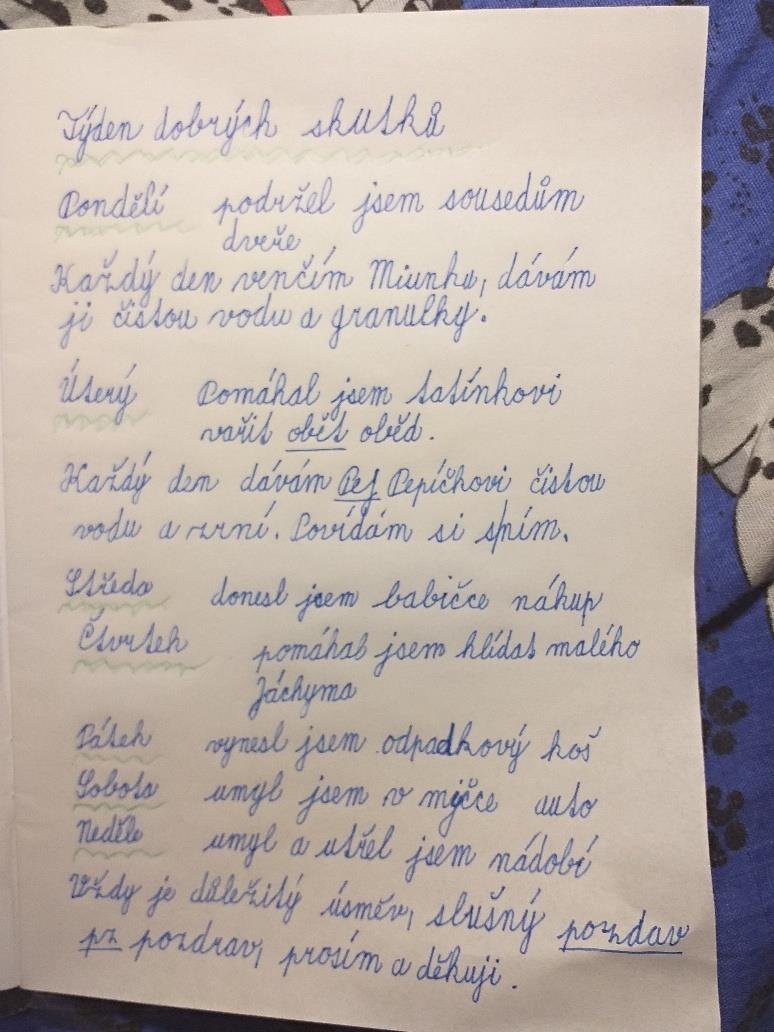 Týden dobrých skutků
Pondělí podržel jsem sousedům
dveře
Každý den venčím Miunku, dávám
ji čistou vodu a granulky.
Úterý Pomáhal jsem tatínkovi
vařit obět oběd.
Každý den dávám Pej Pepíčkovi čistou
vodu a zrní. Povídám si s ním.
Středa donesl jsem babičce nákup
Čtvrtek pomáhal jsem hlídat malého
Jáchyma
Pátek vynesl jsem odpadkový koš
Sobota umyl jsem v myčce auto
Neděle umyl a utřel jsem nádobí
Vždy je důležitý úsměv, slušný pozdav
pz pozdrav, prosím a děkuji.